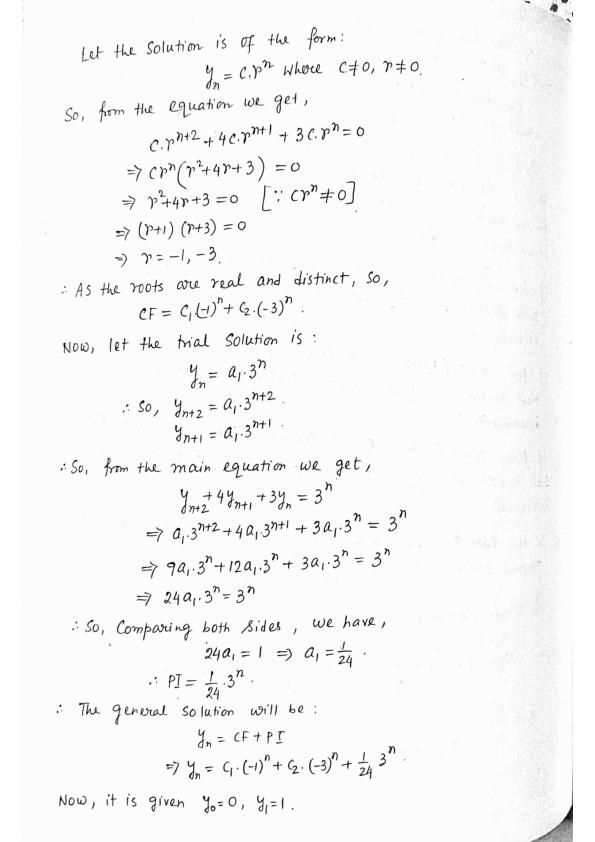 Let the solution is of the form:
yₙ = C.rⁿ where C≠0, r≠0.
So, from the equation we get,
C.rⁿ⁺² + 4C.rⁿ⁺¹ + 3C.rⁿ = 0
⇒ Crⁿ(r²+4r+3) = 0
⇒ r²+4r+3 = 0 [∵ Crⁿ ≠ 0]
⇒ (r+1) (r+3) = 0
⇒ r = -1, -3.
∴ As the roots are real and distinct, so,
CF = C₁(-1)ⁿ + C₂.(-3)ⁿ.
Now, let the trial solution is :
yₙ = a₁.3ⁿ
∴ So, yₙ₊₂ = a₁.3ⁿ⁺².
yₙ₊₁ = a₁.3ⁿ⁺¹.
∴ So, from the main equation we get,
yₙ₊₂ + 4yₙ₊₁ + 3yₙ = 3ⁿ
⇒ a₁.3ⁿ⁺² + 4a₁.3ⁿ⁺¹ + 3a₁.3ⁿ = 3ⁿ
⇒ 9a₁.3ⁿ + 12a₁.3ⁿ + 3a₁.3ⁿ = 3ⁿ
⇒ 24a₁.3ⁿ = 3ⁿ
∴ So, Comparing both sides, we have,
24a₁ = 1 ⇒ a₁ = 1/24.
∴ PI = 1/24.3ⁿ.
∴ The general solution will be :
yₙ = CF + PI
⇒ yₙ = C₁.(-1)ⁿ + C₂.(-3)ⁿ + 1/24 3ⁿ.
Now, it is given y₀=0, y₁=1.